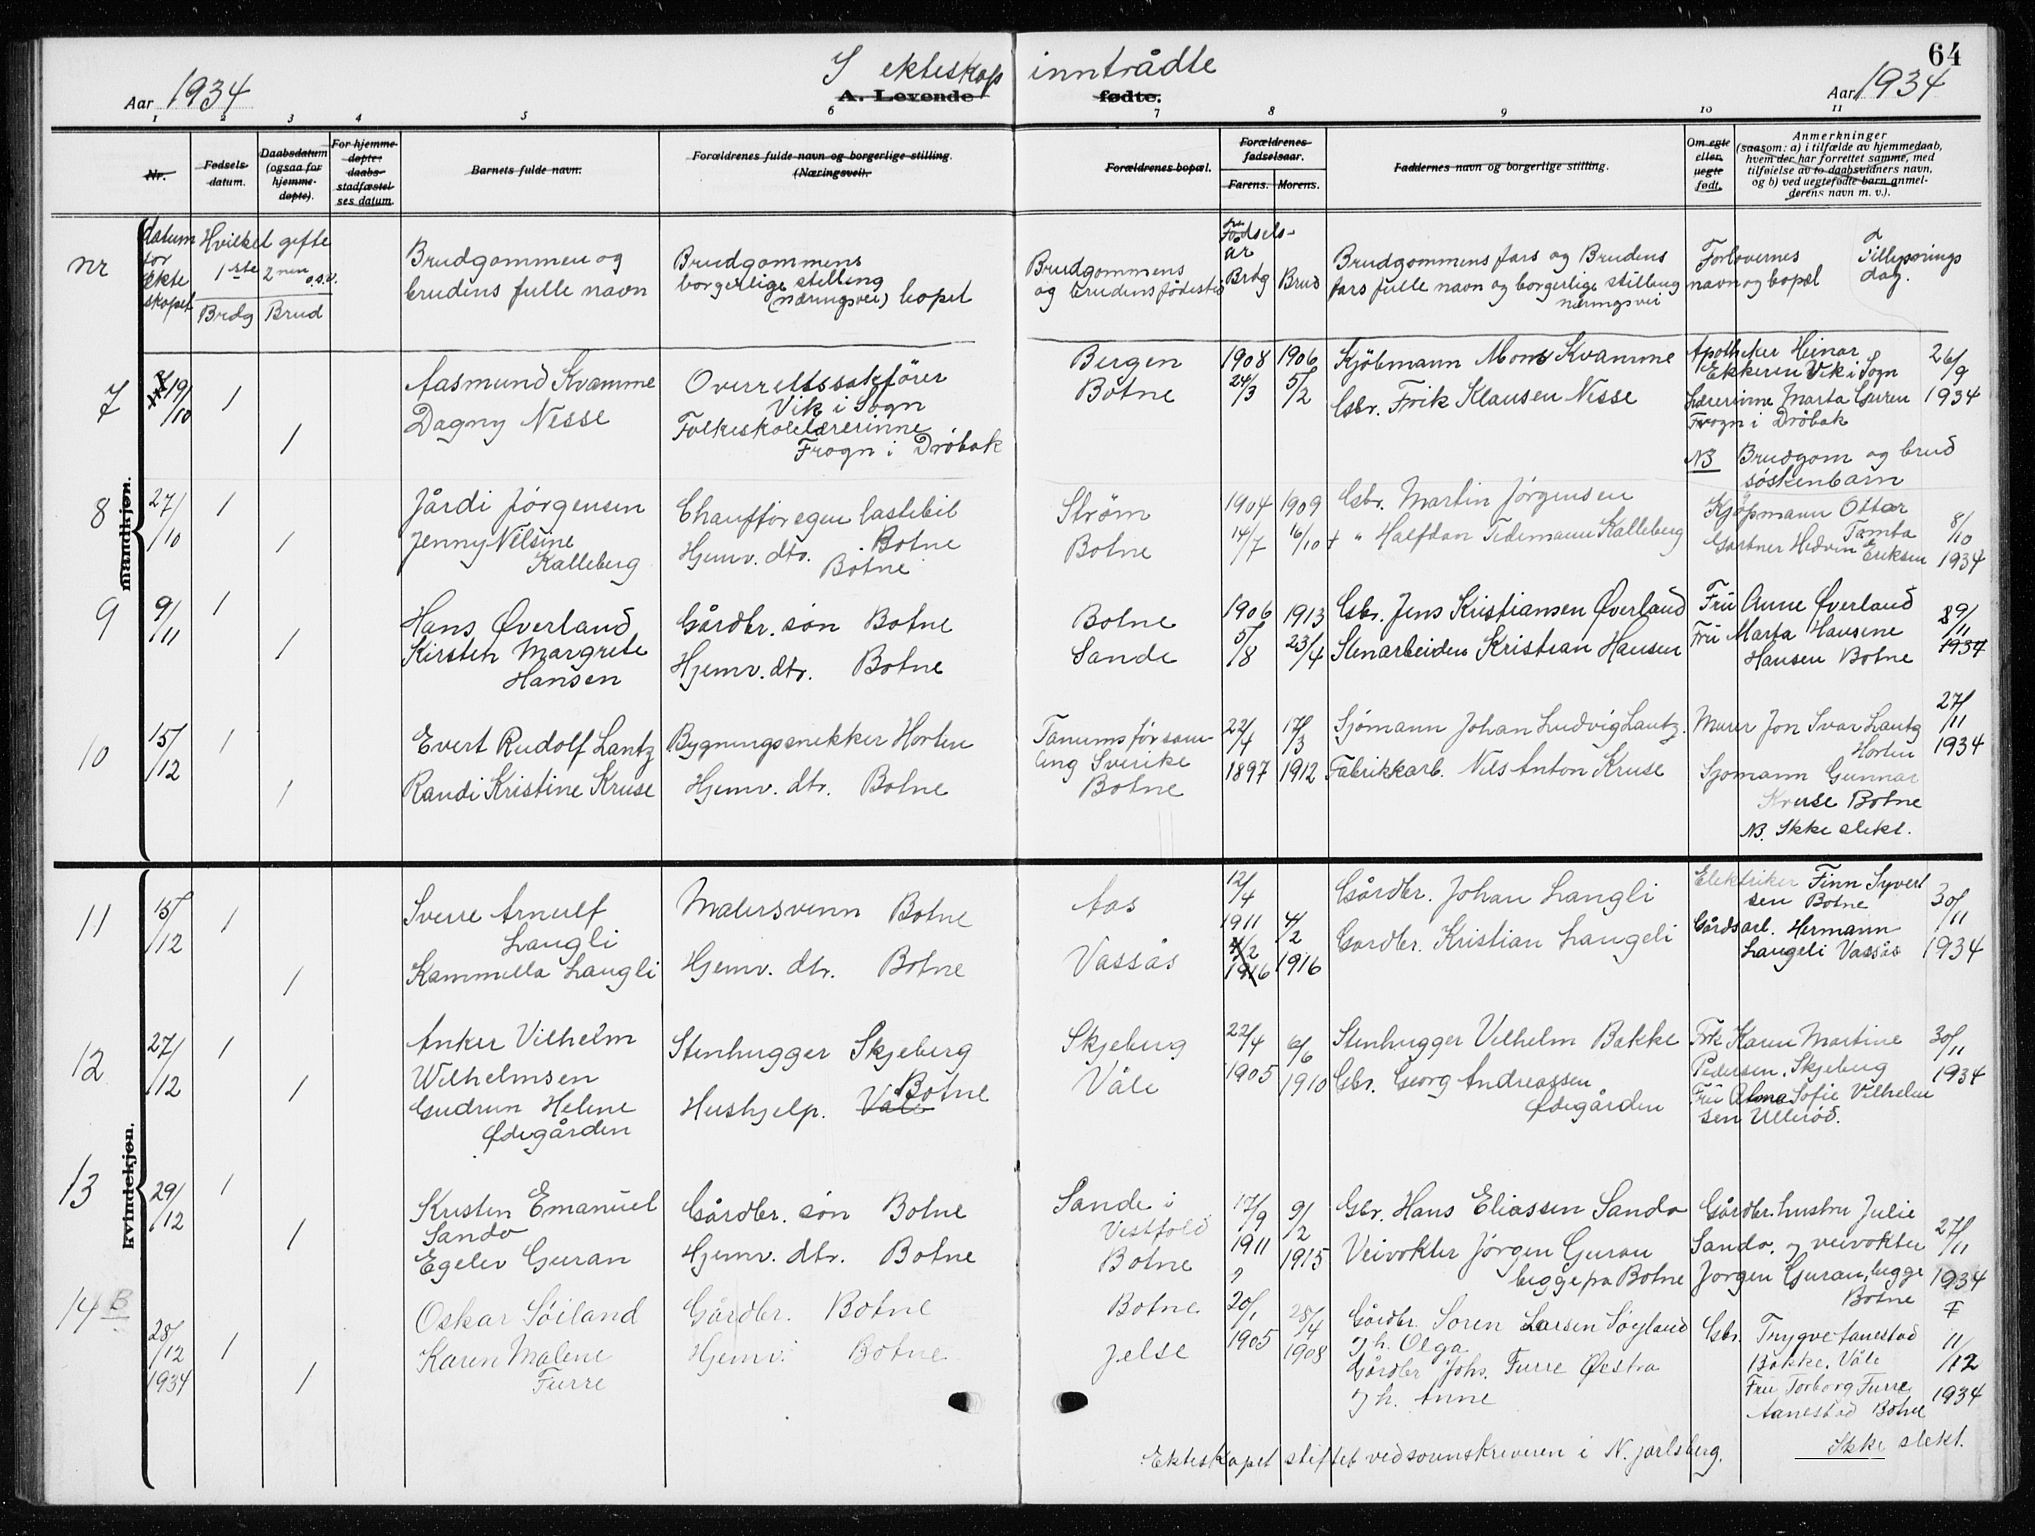 64
I ekteskap inntrådte
Aar 1934
A. Levende fødte.
Aar 1934
1 2 3 4 5 6 7 8 9 10 11
Nr.
Fødsels-datum.
Daabsdatum (ogsaa for hjemme-døpte).
For hjemme-døpte: daabs-stadfæstel-ses datum
Barnets fulde navn.
Forældrenes fulde navn og borgerlige stilling. (Næringsvei).
Forældrenes bopæl.
Forældrenes fødselsaar.
Farens. Morens.
Faddernes navn og borgerlige stilling.
Om egte eller uegte født.
Anmerkninger (saasom: a) i tilfælde av hjemmedaab, hvem der har forrettet samme, med tilføielse av to daabsvidners navn, og b) ved uegtefødte barn anmel-derens navn m. v.).
mandkjøn.
kvindekjøn.
nr
datum for ekte skapet
Hvilket gifte 1ste 2nen o.s.v.
Brdg Brud
Brudgommen og brudens fulle navn
Brudgommens borgerlige stilling (næringsvei) bopel
Brudgommens og brudens fødested
Fødsels-år
Brdg Brud
Brudgommens fars og Brudens fars fulle navn og borgerlige stilling næringsvei
Forlovernes navn og bopel
Tillysnings dag.
7 19/10 1 Aasmund Kvamme Overrettssakfører Vik i Sogn Bergen 1908 24/3 1906 5/2 Kjøbmann Mons Kvamme Apotheker Heinar Ekkeren Vik i Sogn 26/9 1934
1 Dagny Nesse Folkeskolelærerinne Frogn i Drøbak Botne Gbr. Frik Klausen Nesse Lærerinne Marta Guren Frogn i Drøbak
NB Brudgom og brud søskenbarn
8 27/10 1 Jårdi Jørgensen Chauffør egen lastebil Botne Strøm 1904 14/7 1909 16/10 Gbr. Martin Jørgensen Kjøpmann Ottar Tamta 8/10 1934
1 Jenny Nilsine Kalleberg Hjemv. dtr. Botne Botne + " Halfdan Tidemann Kalleberg Gartner Hedvin Eriksen
9 9/11 1 Hans Øverland Gårdbr. søn Botne Botne 1906 5/8 1913 23/4 Gbr. Jens Kristiansen Øverland Fru Anne Øverland 9/11 1934
1 Kirsten Margrete Hansen Hjemv. dtr. Botne Sande Stenarbeider Kristian Hansen Fru Marta Hansine Hansen Botne
10 15/12 1 Evert Rudolf Lantz Bygningssnekker Horten Tanums församling Sverike 22/4 1897 17/3 1912 Sjømann Johan Ludvig Lantz. Murer Jon Ivar Lantz Horten 27/11 1934
1 Randi Kristine Kruse Hjemv. dtr. Botne Botne Fabrikkarb. Nils Anton Kruse Sjømann Gunnar Kruse Botne
NB. Ikke slekt.
11 15/12 1 Sverre Arnulf Langli Malersvenn Botne Aas 12/4 1911 4/2 1916 Gårdbr. Johan Langli Elektriker Finn Syvertsen Botne 30/11 1934
1 Kammilla Langli Hjemv. dtr. Botne Vassås 4/2 1916 Gardbr. Kristian Langeli Gårdsarb. Hermann Langeli Vassås
12 27/12 1 Anker Vilhelm Wilhelmsen Stenhugger Skjeberg Skjeberg 22/4 1905 6/6 1910 Stenhugger Vilhelm Bakke Frk Karen Martine Pedersen, Skjeberg 30/11 1934
1 Gudrun Helene Ødegården Hushjelp. Våle Botne Våle Gbr. Georg Andreassen Ødegården Fru Alma Sofie Vilhelmsen Ullerød.
13 29/12 1 Kristen Emanuel Sando Gårdbr. søn Botne Sande i Vestfold 17/9 1911 9/2 1915 Gbr. Hans Eliassen Sando Gårdbr. hustru Julie Sando, og veivokter 27/11 1934
1 Egelev Guran Hjemv. dtr. Botne Botne Veivokter Jørgen Guran begge fra Botne Jørgen Guran, begge Botne
14 B 28/12 1934 1 Oskar Söiland Gårdbr. Botne Botne ? 20/1 1905 28/4 1908 Gårdbr. Soren Larsen Søyland Jh. Olga Gbr. Trygve Aanestad Bakke, Våle 11/12 1934
1 Karen Malene Furre Hjemv. Botne Jelse Gårdbr Johs. Furre Østra Jh. Anne Fru Torborg Furre Aanestad Botne
Ekteskapet stiftet ved sorenskriveren i N. Jarlsberg. Ikke slekt.